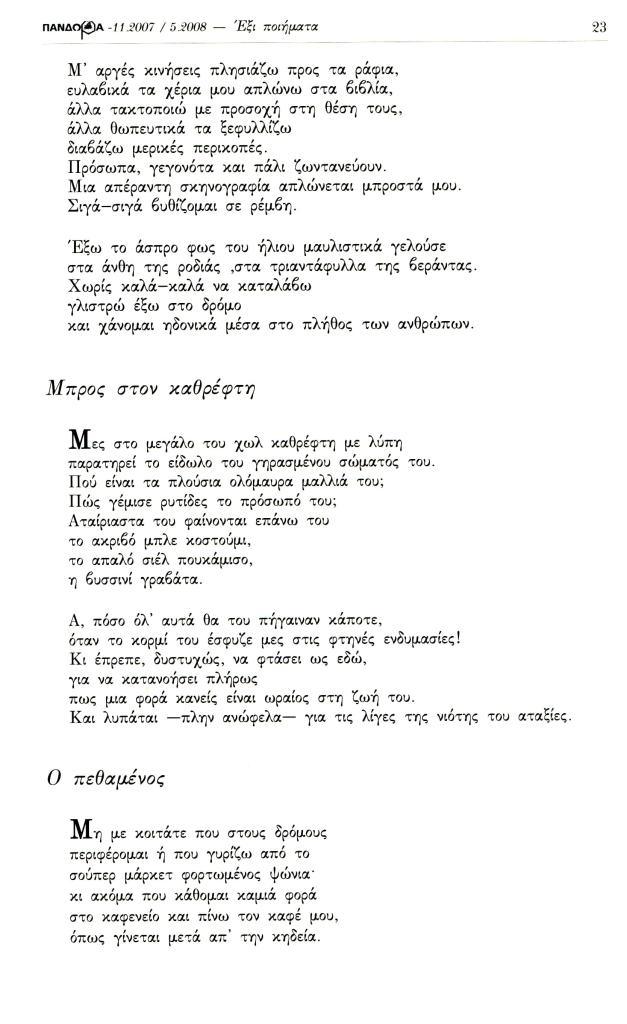 ΠΑΝΔΩΡΑ -11.2007 / 5.2008 — Έξι ποιήματα 23
Μ' αργές κινήσεις πλησιάζω προς τα ράφια,
ευλαβικά τα χέρια μου απλώνω στα βιβλία,
άλλα τακτοποιώ με προσοχή στη θέση τους,
άλλα θωπευτικά τα ξεφυλλίζω
διαβάζω μερικές περικοπές.
Πρόσωπα, γεγονότα και πάλι ζωντανεύουν.
Μια απέραντη σκηνογραφία απλώνεται μπροστά μου.
Σιγά—σιγά βυθίζομαι σε ρέμβη.
Έξω το άσπρο φως του ήλιου μαυλιστικά γελούσε
στα άνθη της ροδιάς ,στα τριαντάφυλλα της βεράντας.
Χωρίς καλά—καλά να καταλάβω
γλιστρώ έξω στο δρόμο
και χάνομαι ηδονικά μέσα στο πλήθος των ανθρώπων.
Μπρος στον καθρέφτη
Μες στο μεγάλο του χωλ καθρέφτη με λύπη
παρατηρεί το είδωλο του γηρασμένου σώματός του.
Πού είναι τα πλούσια ολόμαυρα μαλλιά του;
Πώς γέμισε ρυτίδες το πρόσωπό του;
Αταίριαστα του φαίνονται επάνω του
το ακριβό μπλε κοστούμι,
το απαλό σιέλ πουκάμισο,
η βυσσινί γραβάτα.
Α, πόσο όλ' αυτά θα του πήγαιναν κάποτε,
όταν το κορμί του έσφυζε μες στις φτηνές ενδυμασίες!
Κι έπρεπε, δυστυχώς, να φτάσει ως εδώ,
για να κατανοήσει πλήρως
πως μια φορά κανείς είναι ωραίος στη ζωή του.
Και λυπάται —πλην ανώφελα— για τις λίγες της νιότης του αταξίες.
Ο πεθαμένος
Μη με κοιτάτε που στους δρόμους
περιφέρομαι ή που γυρίζω από το
σούπερ μάρκετ φορτωμένος ψώνια·
κι ακόμα που κάθομαι καμιά φορά
στο καφενείο και πίνω τον καφέ μου,
όπως γίνεται μετά απ' την κηδεία.